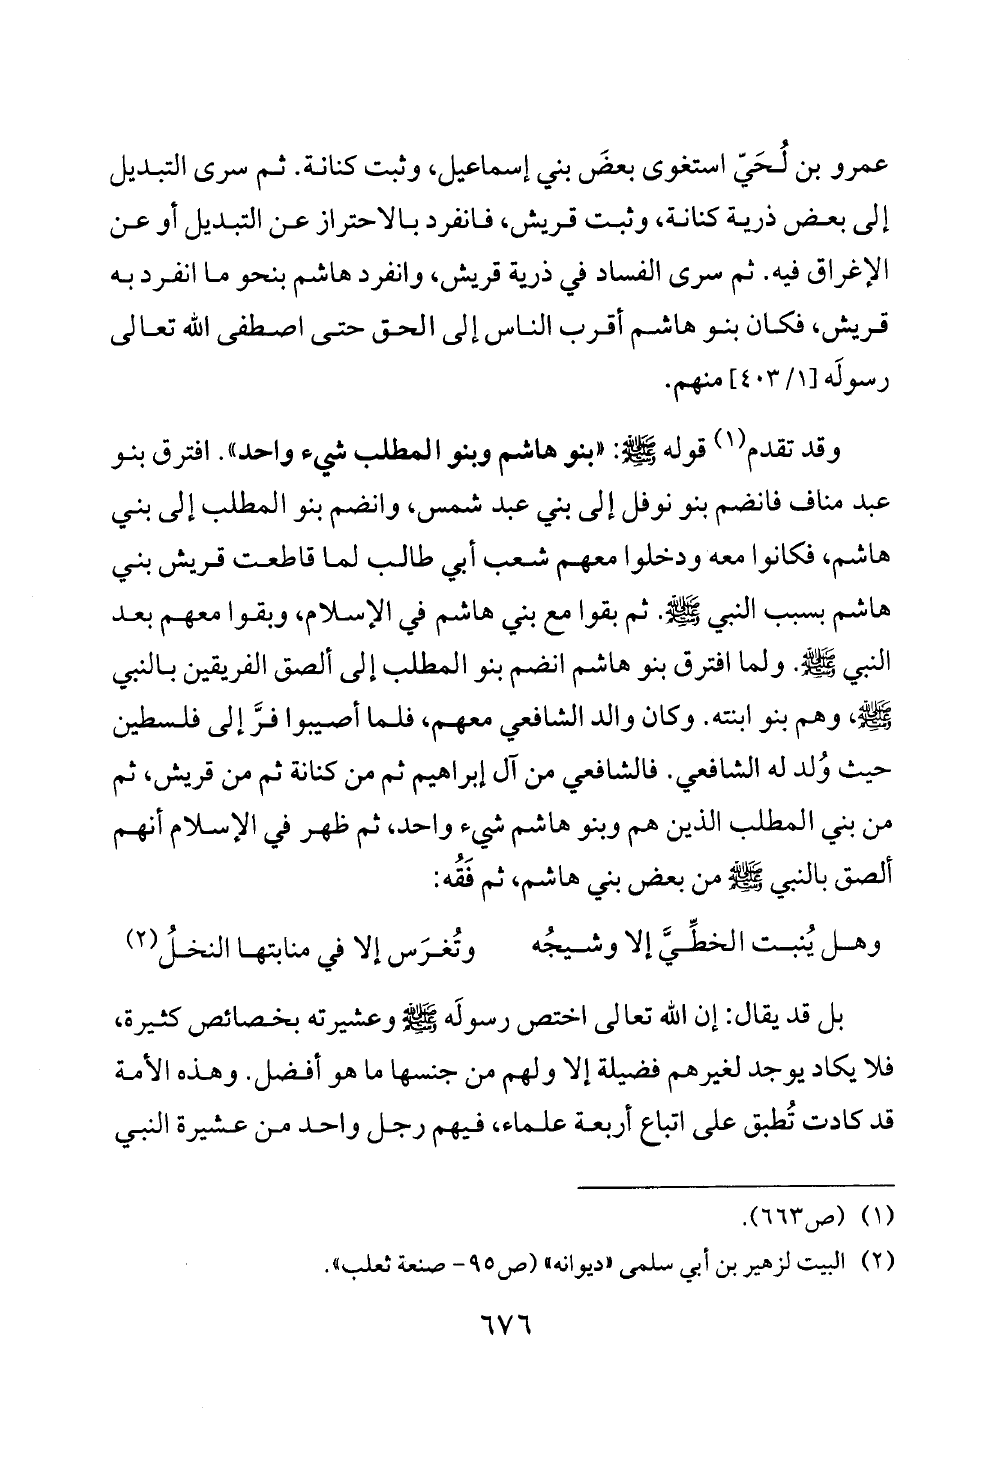 عمرو بن لُحَيّ استغوى بعضَ بني إسماعيل، وثبت كنانة. ثم سرى التبديل
إلى بعض ذرية كنانة، وثبت قريش، فانفرد بالاحتراز عن التبديل أو عن
الإغراق فيه. ثم سرى الفساد في ذرية قريش، وانفرد هاشم بنحو ما انفرد به
قريش، فكان بنو هاشم أقرب الناس إلى الحق حتى اصطفى الله تعالى
رسولَه [١/ ٤٠٣] منهم.
وقد تقدم(١) قوله ﷺ: «بنو هاشم وبنو المطلب شيء واحد». افترق بنو
عبد مناف فانضم بنو نوفل إلى بني عبد شمس، وانضم بنو المطلب إلى بني
هاشم، فكانوا معه ودخلوا معهم شعب أبي طالب لما قاطعت قريش بني
هاشم بسبب النبي ﷺ. ثم بقوا مع بني هاشم في الإسلام، وبقوا معهم بعد
النبي ﷺ. ولما افترق بنو هاشم انضم بنو المطلب إلى ألصق الفريقين بالنبي
ﷺ، وهم بنو ابنته. وكان والد الشافعي معهم، فلما أصيبوا فرَّ إلى فلسطين
حيث وُلد له الشافعي. فالشافعي من آل إبراهيم ثم من كنانة ثم من قريش، ثم
من بني المطلب الذين هم وبنو هاشم شيء واحد، ثم ظهر في الإسلام أنهم
ألصق بالنبي ﷺ من بعض بني هاشم، ثم فَقُه:
وهل يُنبت الخطِّيَّ إلا وشيجُه وتُغرَس إلا في منابتها النخلُ(٢)
بل قد يقال: إن الله تعالى اختص رسولَه ﷺ وعشيرته بخصائص كثيرة،
فلا يكاد يوجد لغيرهم فضيلة إلا ولهم من جنسها ما هو أفضل. وهذه الأمة
قد كادت تُطبق على اتباع أربعة علماء، فيهم رجل واحد من عشيرة النبي
(١) (ص٦٦٣).
(٢) البيت لزهير بن أبي سلمى «ديوانه» (ص٩٥- صنعة ثعلب».
٦٧٦